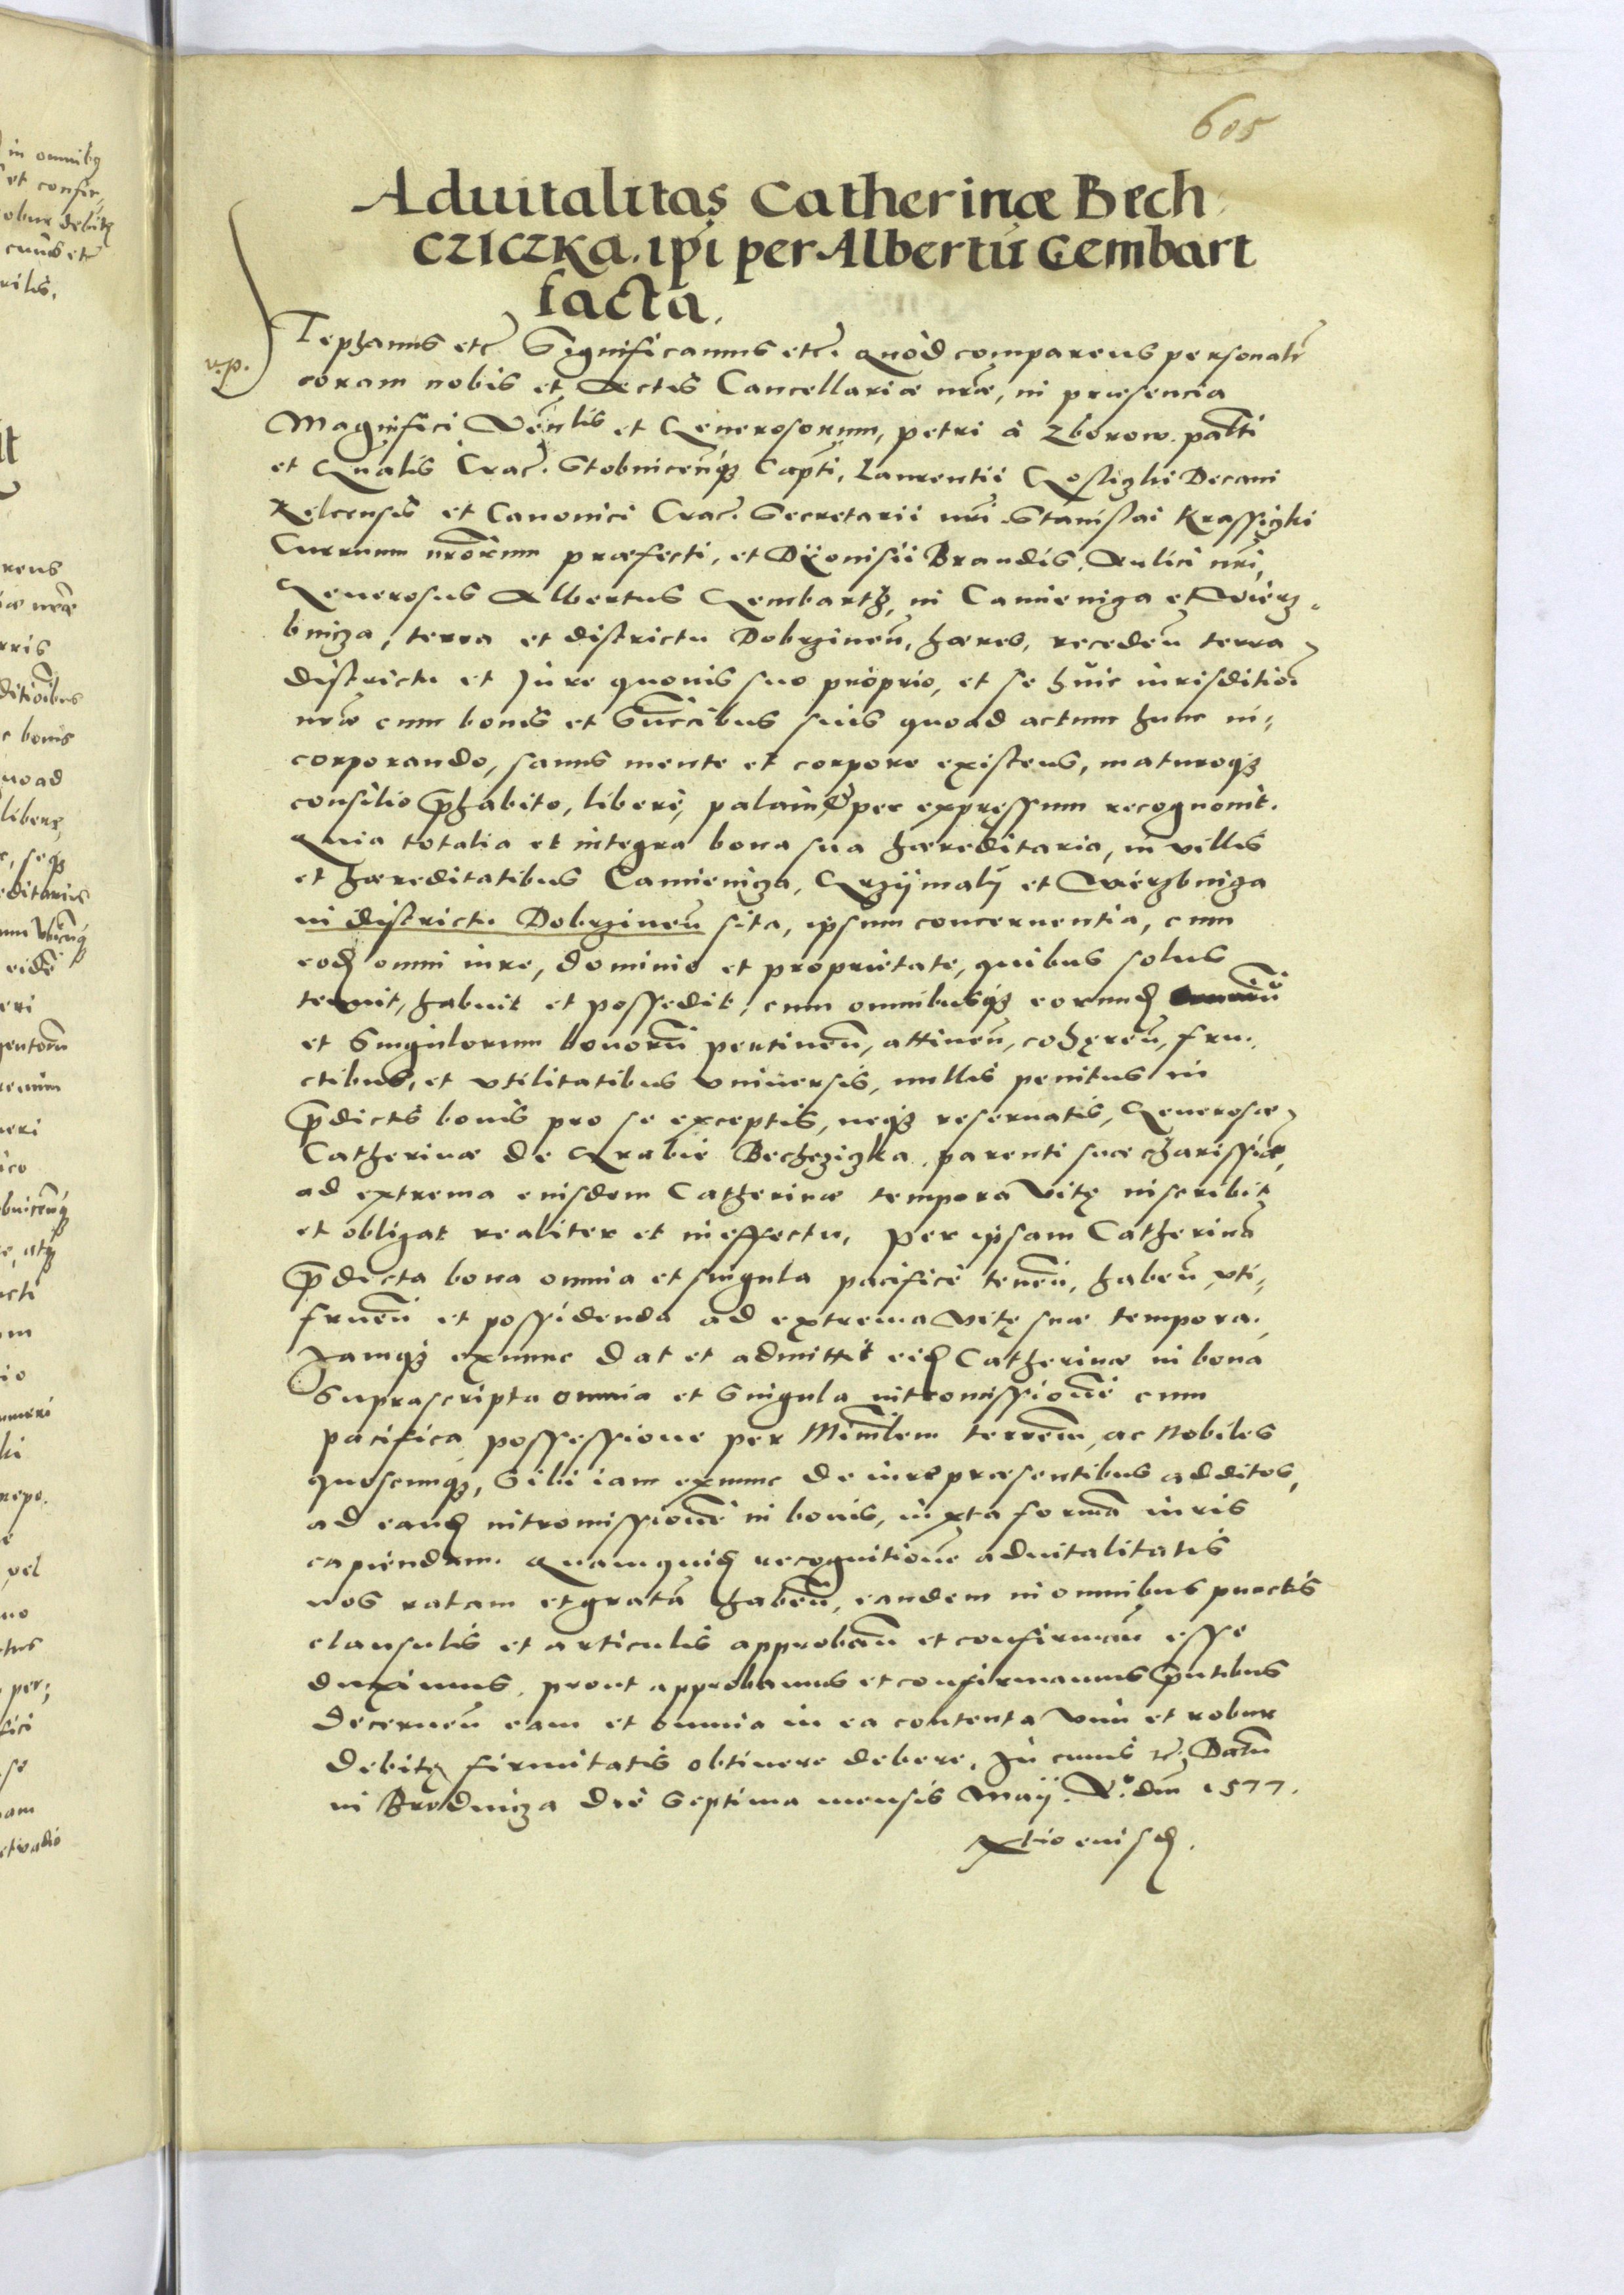 605
Aduitalitas Catherinæ Bech
cziczka. ipi per Albertū Gembart
facta.
v.p.
Tephanus etc̃ Significamus etc̃. Quòd comparens personalr̃
coram nobis et Actis Cancellariæ nr̃æ, in præsencia
Magnifici Vēnlis et Generosorum, Petri à Zborow. Palti
et Gnalis Crac̃. Stobnicen̄q3 Capti, Laurentii Goslizki Decani
Kelcensis et Canonici Crac̃. Secretarii nr̃i Stanislai Krassizki
Curruum nr̃orum præfecti, et Dÿonisii Brandis, Aulici nr̃i,
Generosus Albertus Gembartħ, in Camieniza et Wierz,
bniza, terra et districtu Dobrzinen̄, hæres, receden̄ terra
districtu et Jure quouis suo proprio, et se huic iurisditioi
nr̃æ cum bonis et Succ̄ibus suis quoad actum hunc in,
corporando, sanus mente et corpore existens, maturoq3
consilio p̄habito, liberè, palàm, & per expressum recognouit.
Quia totalia et integra bona sua hæreditaria, in villis
et hæreditatibus Camieniza, Grzÿmalÿ et Wierzbniza
in districtu Dobrzinen̄ sita, ipsum concernentia, cum
eod̄ omni iure, dominio et proprietate, quibus solus
tenuit, habuit et possedit, cum omnibusq3 eorund̄
et Singulorum bonorū pertinen̄, attinen̄, cohęren̄, fru,
ctibus, et vtilitatibus vniuersis, nullis penitus in
p̄dictis bonis pro se exceptis, neq3 reseruatis, Generosæ
Catherinæ de Grabie Bechcziczka parenti suæ charissiæ,
ad extrema eiusdem Catherinæ tempora vitę inscribit
et obligat realiter et in effectu, per ipsam Catherinā
p̄dicta bona omnia et singula pacificè tenen̄, haben̄, vti,
fruen̄ et possidenda ad extrema vitę suæ tempora.
Jamq3 exnunc dat et admittit eid̄ Catherinæ in bona
Suprascripta omnia et Singula intromissionē cum
pacifica possessione per Minr̄lem terren̄m, ac Nobiles
quoscunq3, Sibi iam exnunc de iure præsentibus additos,
ad eand̄ intromissionē in bonis, iuxta formā iuris
capiendam. Quamquid̄ recognitionē aduitalitatis
nos ratam et gratā haben̄, eandem in omnibus punctis
clausulis et articulis approban̄ et confirman̄ esse
duximus, prout approbamus et confirmamus p̄ntibus
Decernen̄ eam et omnia in ea contenta vim et robur
debitę firmitatis obtinere debere, In cuius etc̃ Datū
in Brodniza die Septima mensis Maij. A.º dni 1577.
Rłtio eiusd̄.